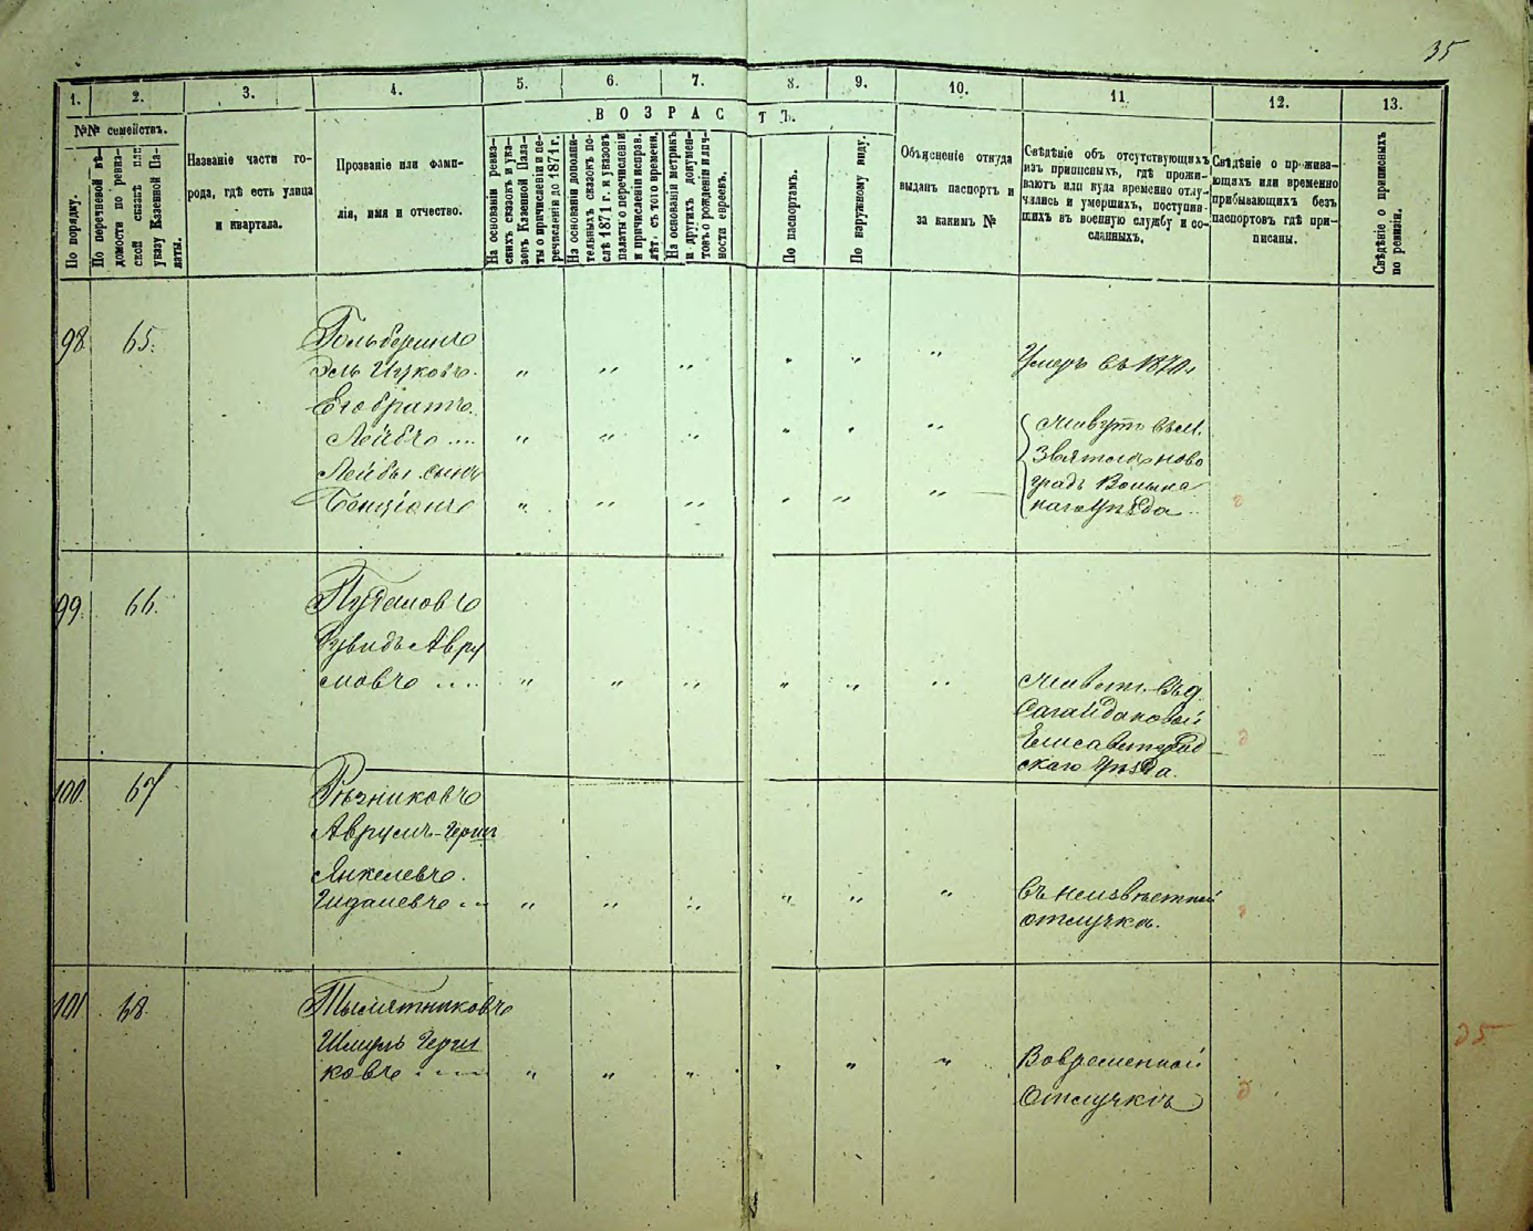 35
1. 2. 3. 4. 5. 6. 7. 8. 9. 10. 11. 12. 13.
№№ семействъ.
По порядку.
По перечневой вѣ-
домости по ревиз-
ской сказкѣ или
указу Казенной Па-
латы.
Названіе части го-
рода, гдѣ есть улица
и квартала.
Прозваніе или фами-
лія, имя и отчество.
ВОЗРАСТЪ.
На основаніи ревиз-
скихъ сказокъ и ука-
зовъ Казенной Пала-
ты о причисленіи и пе-
речисленіи до 1871 г.
На основаніи дополни-
тельныхъ сказокъ по-
слѣ 1871 г. и указовъ
палаты о перечисленіи
и причисленіи исправ.
лѣт. съ того времени.
На основаніи метрикъ
и другихъ докумен-
товъ о рожденіи и лич-
ности евреевъ.
По паспортамъ.
По наружному виду.
Объясненіе откуда
выданъ паспортъ и
за какимъ №
Свѣдѣніе объ отсутствующихъ
изъ приписныхъ, гдѣ прожи-
ваютъ или куда временно отлу-
чились и умершихъ, поступив-
шихъ въ военную службу и со-
сланныхъ.
Свѣдѣніе о прожива-
ющихъ или временно
прибывающихъ безъ
паспортовъ гдѣ при-
писаны.
Свѣдѣніе о приписныхъ
по ревизіи.
98. 65. Гольберинъ
Эль Ицковъ. " " " " " " Умеръ въ 1870 г.
Его братъ
Лейбъ .... " " " " " " Живутъ въ м.
Лейбы сынъ Звятелѣ ново
градъ Волынс
Бенціонъ " " " " " " каго Уѣзда
99. 66.
мовъ .... " " " " " " Живет. въ д.
Сагайдаковой
Елисаветград
скаго Уѣзда.
100. 67 Рѣзниковъ
Аврумъ-Герш
Янкелевъ.
Шдалевъ .... " " " " " " Въ неизвѣстной
отлучкѣ.
101 68. Тысмятниковъ
Шмуль Герш
ковъ ..... " " " " " " Вовременной
Отлучкѣ
35